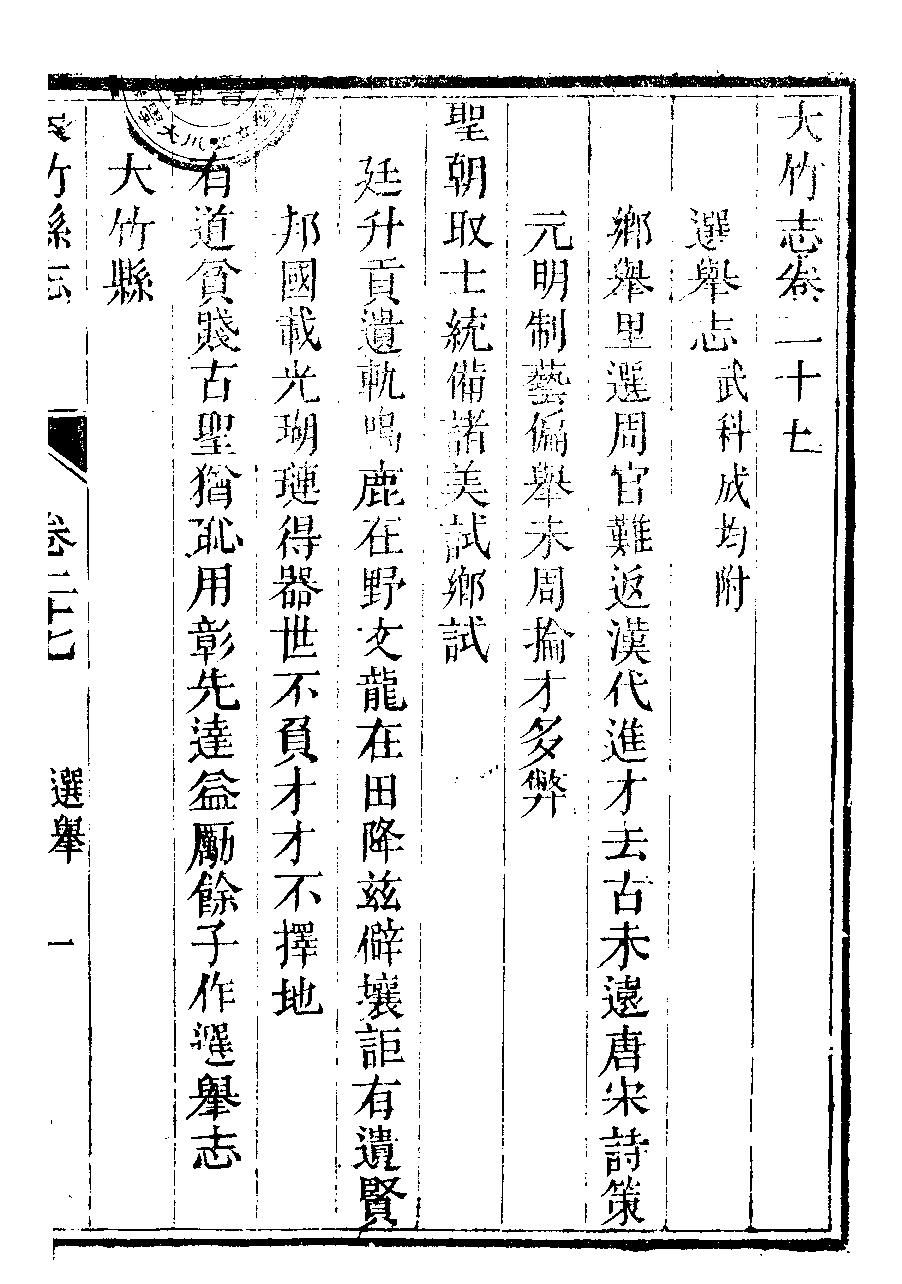 大竹志卷二十七
選舉志 武科成均附
鄉舉里選周官難返漢代進才去古未遠唐宋詩策
元明制藝偏舉未周掄才多弊
聖朝取士統備諸美試鄉試
廷升貢遺軌鳴鹿在野文龍在田降茲僻壤詎有遺賢
邦國載光瑚璉得器世不負才才不擇地
有道貧賤古聖猶恥用彰先達益勵餘子作選舉志
大竹縣
竹縣志 卷二十七 選舉 一